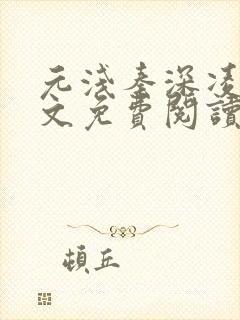 元淺秦深凌
文免費閱讀
頓丘